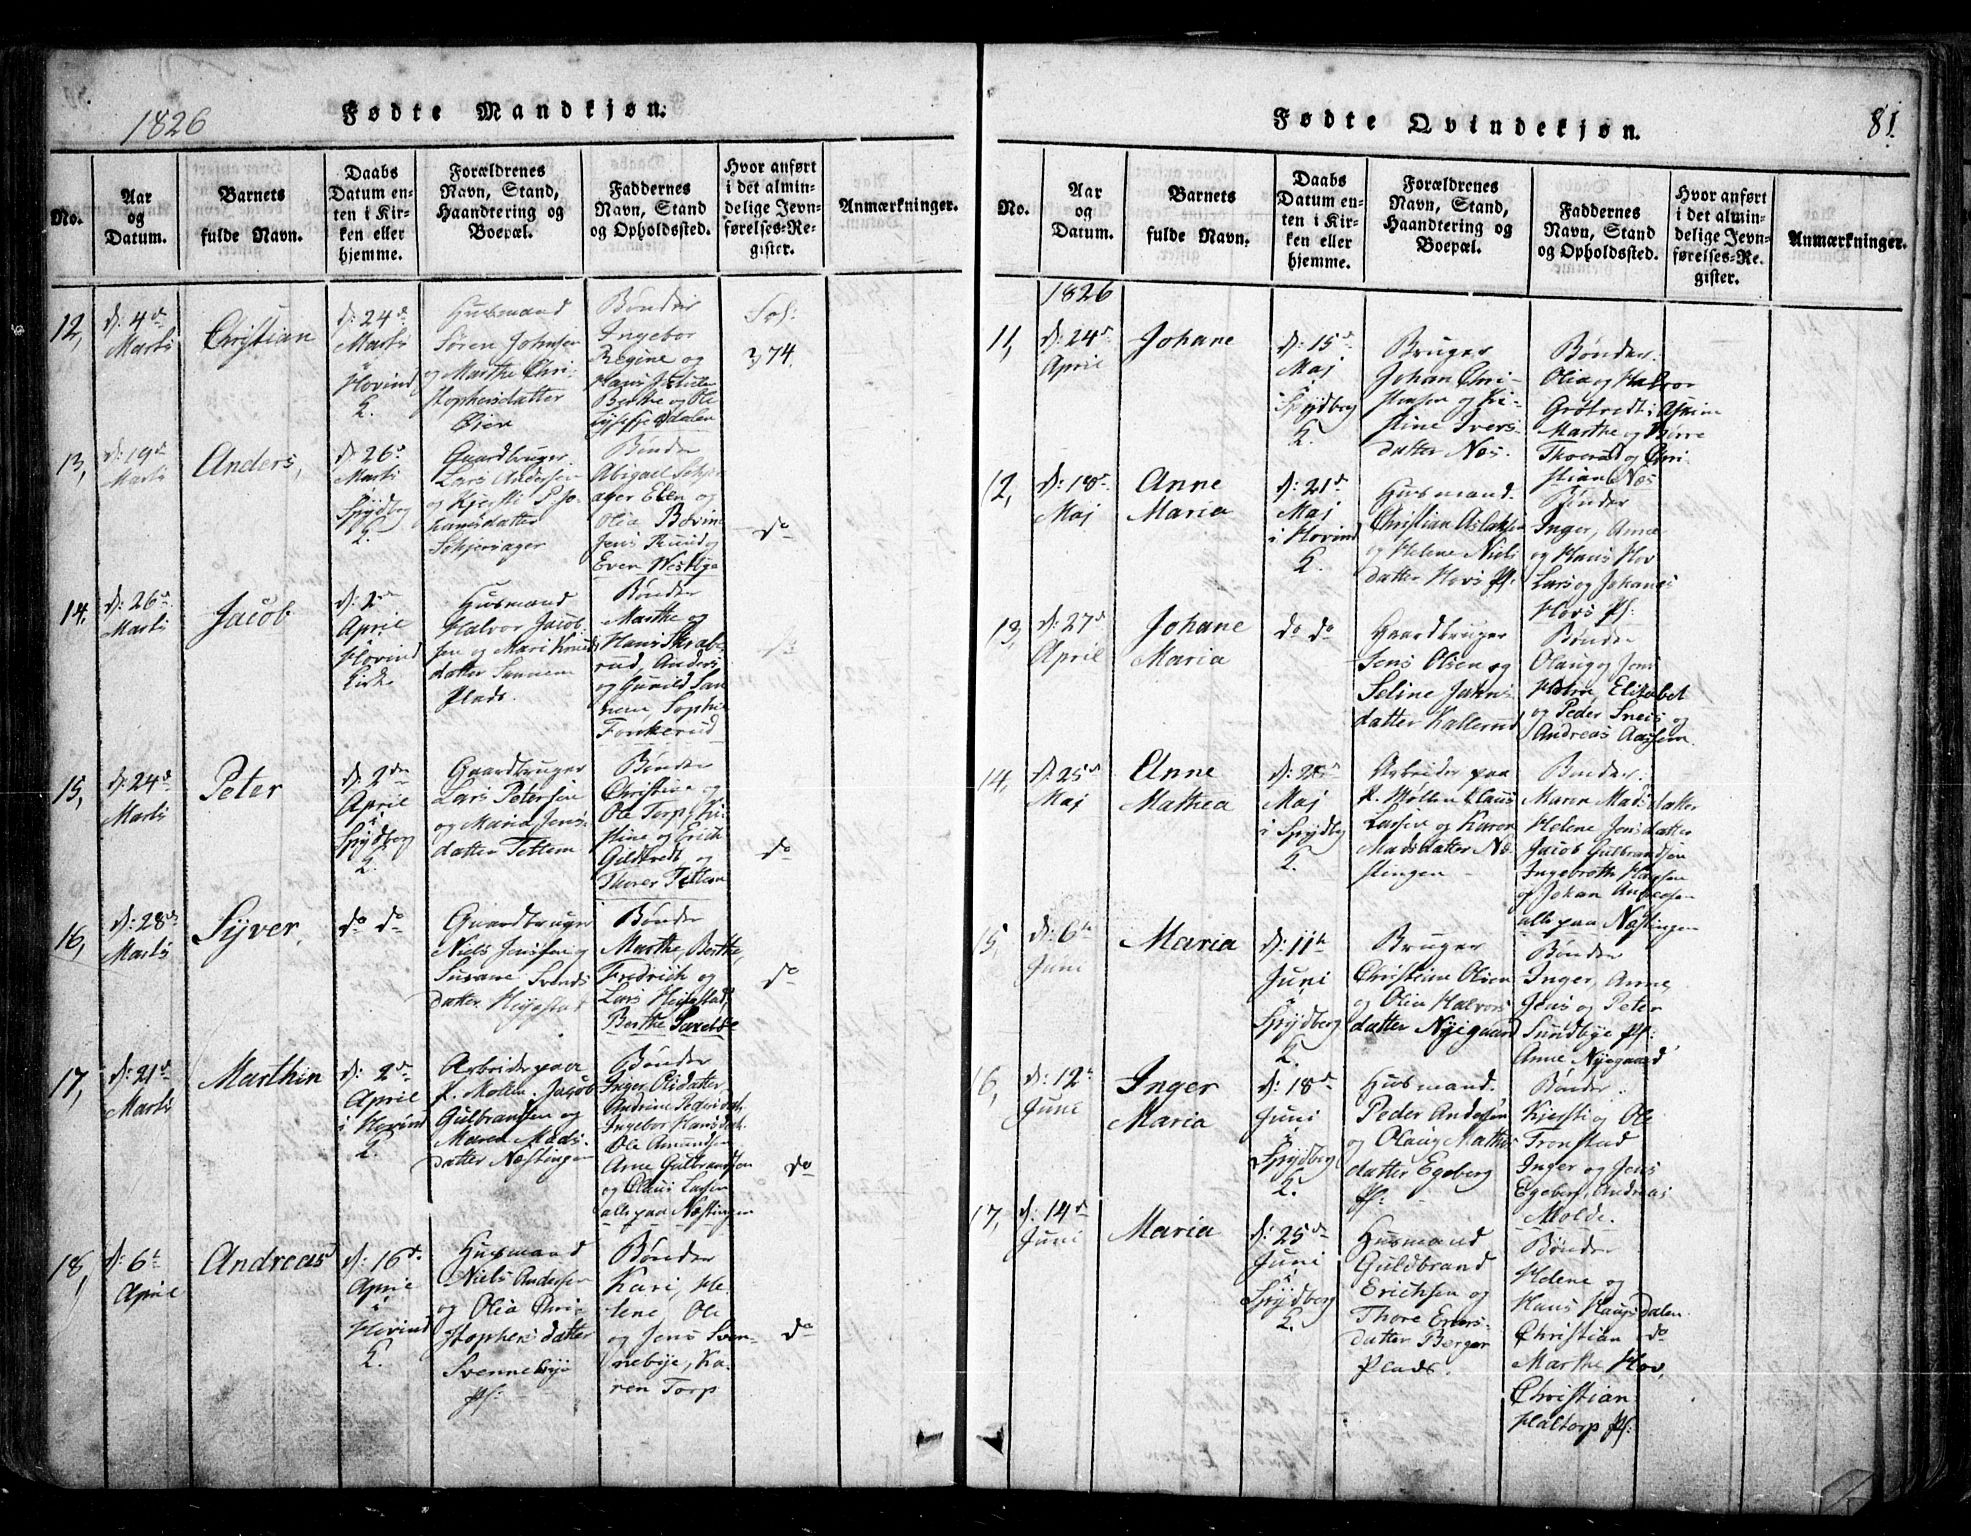 1826
Fødte Mandkjøn.
No.
Aar
og
Datum.
Barnets
fulde Navn.
Daabs
Datum en-
ten i Kir-
ken eller
hjemme.
Forældrenes
Navn, Stand,
Haandtering og
Boepæl.
Faddernes
Navn, Stand
og Opholdssted.
Hvor anført
i det almin-
delige Jevn-
førelses-Re-
gister.
Anmærkninger.
12,
d: 4de
Marts
Christian
d: 24d
Marts
i
Hovind
K.
Husmand
Søren Johnsen
og Marthe Chri-
stophersdatter
Bønder
Ingebor
Regine og
Berthe og Ole
74.
13,
d: 19de
Marts
Anders,
d: 26d
Marts
i
Spydberg
K.
Gaardbruger
Lars Andersen
og Kjersti Jo-
hansdatter
Bønder
Abigael
Elen og
Olia
Jens Ruud og
Even Westbye
do
14,
d: 26d
Marts
Jacob
d: 2den
April
i
Hovind
Kirke
Husmand
Halvor Jacob-
sen og Mari Knuds
datter Sannem
Plads.
Bønder
Marthe og
Hans Skrabe-
rud, Anders
og Gunild San-
nem Sophie
Fonkerud
15,
d: 24d
Marts
Peter
d: 2den
April
i
Spydberg
K.
Gaardbruger
Lars Petersen
og Maria Jens-
datter Tettem
Bønder
Christine og
Ole Torp, Ki-
stine og Erich
Gildtvedt og
Thorer Tettem
do
16,
d: 28de
Marts
Syver,
do do
Gaardbruger
Niels Jensen og
Susane Svends
datter
Bønder
Marthe, Berthe,
Fredrich og
Lars
Berthe
do
17,
d: 21d
Marts
Marthin
d: 2den
April
i Hovind
K.
Arbeider paa
K. Mollen Jacob
Gulbrandsen og
Maren Mads-
datter Næstingen
Bønder
Inger Olsdatter,
Andrine Pedersdatr.
Ingebor Hansdatr.
Ole Amundsen
Arne Gulbrandsen
og Claus Larsen
alle paa Næstingen
do
18,
d: 6t
April
Andreas
d: 16d.
April
i
Hovind
K.
Husmand
Niels Andersen
og Olia Chri-
stophersdatter
Svennebye
Pl:
Bønder
Kari, He-
lene Ole
og Jens Sven-
nebye, Ka-
ren Torp
do
81.
Fødte Qvindekjøn.
No.
Aar
og
Datum.
Barnets
fulde Navn.
Daabs
Datum en-
ten i Kir-
ken eller
hjemme.
Forældrenes
Navn, Stand,
Haandtering og
Boepæl.
Faddernes
Navn, Stand
og Opholdssted.
Hvor anført
i det almin-
delige Jevn-
førelses-Re-
gister.
Anmærkninger.
1826
11,
d: 24d
April
Johane
d: 15d
Maj
i
Spydberg
K.
Bruger
Johan Chri-
stensen og Ki-
stine Ivers-
datter Nes.
Bønder.
Olia og Halvor
Grøtvedt i Askim
Marthe og Børre
Thoerud og Chri-
stian Nes
12,
d: 18d
Maj
Anne
Maria
d: 21d
Maj
i Hovind
K.
Husmand.
Christian Aslaksen
og Helene Niels
datter Hovs Pl.
Bønder
Inger, Anne
og Hans Hov
Lars og Johanes
Hovs Pl:
13,
d: 27d
April
Johane
Maria
do do
Gaardbruger
Jens Olsen og
Seline Jahns
datter Kallerud
Bønder
Olaug og Jens
Elisabet
og Peder Sneis og
Andreas Aassem.
14,
d: 25d
Maj
Anne
Mathea
Maj
i Spydbg
K.
Arbeider paa
K. Møllen Claus
Larsen og Karen
Madsdatter Næ-
stingen
Bønder
Maren Madsdatter
Helene Jensdatter
Jacob Gulbrandsen
Ingebroth Hansen
og Johan Andersen
alle paa Næstingen
15,
d: 6te
Juni
Maria
d: 11te
Juni
i
Spydberg
K.
Bruger
Christian Olsen
og Olia Halvors
datter Nyegaard
Bønder
Inger, Anne,
Jens og Peter
Sundbye Pl:
Anne Nyegaard
16,
d: 12t
Juni
Inger
Maria
d: 18d
Juni
i
Spydberg
K.
Husmand.
Peder Andersen
og Olaug Mathis
datter Egeberg
Pl:
Bønder.
Kjersti og Ole
Fronstad
Inger og Jens
Egeberg, Andreas
Molde.
17,
d: 14d
Juni
Maria
d: 25d
Juni
i
Spydberg
K.
Husmand
Guldbrand
Erichsen og
Thore Evers-
datter Berger
Plads.
Bønder
Helene og
Hans Haugsdalen
Christian do
Marthe Hov,
Christian
Haltorp Pl: